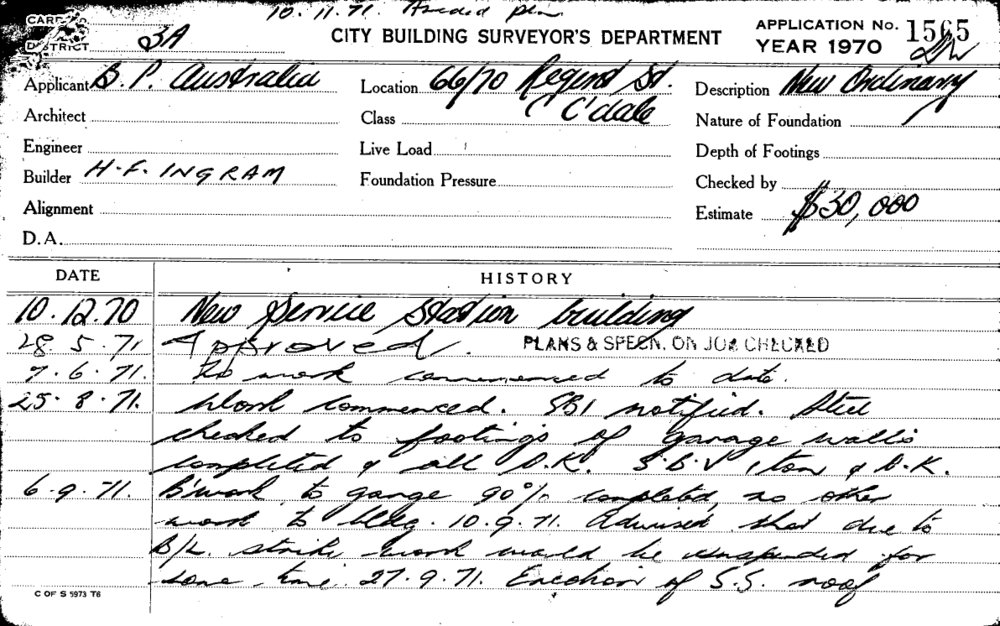 10.11.71. Amended plan
CARD
DISTRICT
3A
CITY BUILDING SURVEYOR'S DEPARTMENT
APPLICATION No. 1565
YEAR 1970
Applicant B. P. Australia
Location 66/70 Regent St.
C'dale
Description New Ordinary
Architect
Class
Nature of Foundation
Engineer
Live Load
Depth of Footings
Builder H.F. INGRAM
Foundation Pressure
Checked by
Alignment
Estimate $30,000
D.A.
DATE HISTORY
10.12.70 New Service Station building
28.5.71 Approved. PLANS & SPECN. ON JOB CHECKED
7.6.71. No work commenced to date.
25.8.71. Work commenced. SBI notified. Steel
checked to footings of garage walls
completed & all O.K. S.B.V. & O.K.
6.9.71. B'work to garage 90% completed, no other
work to bldg. 10.9.71. Advised that due to
B/L. strike work would be suspended for
some time. 27.9.71. Erection of S.S. roof
C OF S 5973 T6